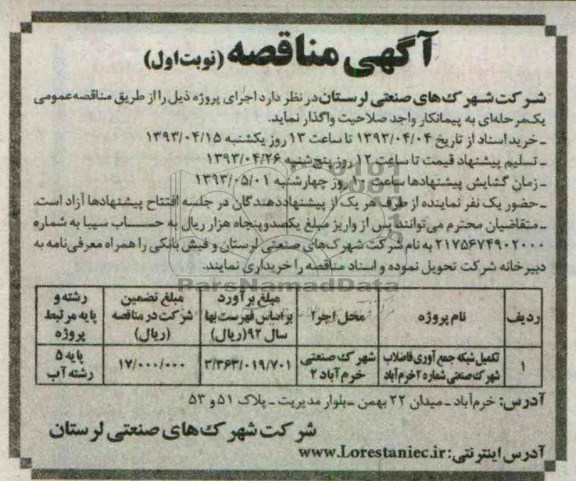 آگهی مناقصه (نوبت اول)
شرکت شهرک‌های صنعتی لرستان در نظر دارد اجرای پروژه ذیل را از طریق مناقصه عمومی
یک مرحله‌ای به پیمانکار واجد صلاحیت واگذار نماید.
ـ خرید اسناد از تاریخ ۱۳۹۳/۰۴/۰۴ تا ساعت ۱۳ روز یکشنبه ۱۳۹۳/۰۴/۱۵
ـ تسلیم پیشنهاد قیمت تا ساعت ۱۲ روز پنج‌شنبه ۱۳۹۳/۰۴/۲۶
ـ زمان گشایش پیشنهادها ساعت ۱۰ روز چهارشنبه ۱۳۹۳/۰۵/۰۱
ـ حضور یک نفر نماینده از طرف هر یک از پیشنهاددهندگان در جلسه افتتاح پیشنهادها آزاد است.
ـ متقاضیان محترم می‌توانند پس از واریز مبلغ یکصدوپنجاه هزار ریال به حساب سیبا به شماره
۲۱۷۵۶۷۴۹۰۲۰۰۰ به نام شرکت شهرک‌های صنعتی لرستان و فیش بانکی را همراه معرفی‌نامه به
دبیرخانه شرکت تحویل نموده و اسناد مناقصه را خریداری نمایند.
ParsNamadData
ردیف نام پروژه محل اجرا مبلغ برآورد براساس فهرست بها سال ۹۲ (ریال) مبلغ تضمین شرکت در مناقصه (ریال) رشته و پایه مرتبط پروژه
۱ تکمیل شبکه جمع آوری فاضلاب شهرک صنعتی شماره ۲ خرم آباد شهرک صنعتی خرم آباد ۲ ۳/۳۶۳/۰۱۹/۷۰۱ ۱۷/۰۰۰/۰۰۰ پایه ۵ رشته آب
آدرس: خرم‌آباد ـ میدان ۲۲ بهمن ـ بلوار مدیریت ـ پلاک ۵۱ و ۵۳
شرکت شهرک‌های صنعتی لرستان
آدرس اینترنتی: www.Lorestaniec.ir